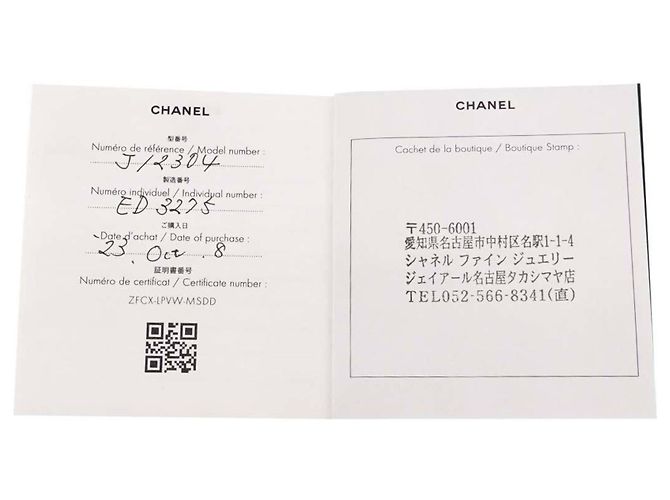 CHANEL
型番号
Numéro de référence / Model number :
J12304
製造番号
Numéro individuel / Individual number :
ED 3275
ご購入日
Date d'achat / Date of purchase :
23. Oct. 8
証明書番号
Numéro de certificat / Certificate number :
ZFCX-LPVW-MSDD
CHANEL
Cachet de la boutique / Boutique Stamp :
〒450-6001
愛知県名古屋市中村区名駅1-1-4
シャネル ファイン ジュエリー
ジェイアール名古屋タカシマヤ店
TEL052-566-8341(直)